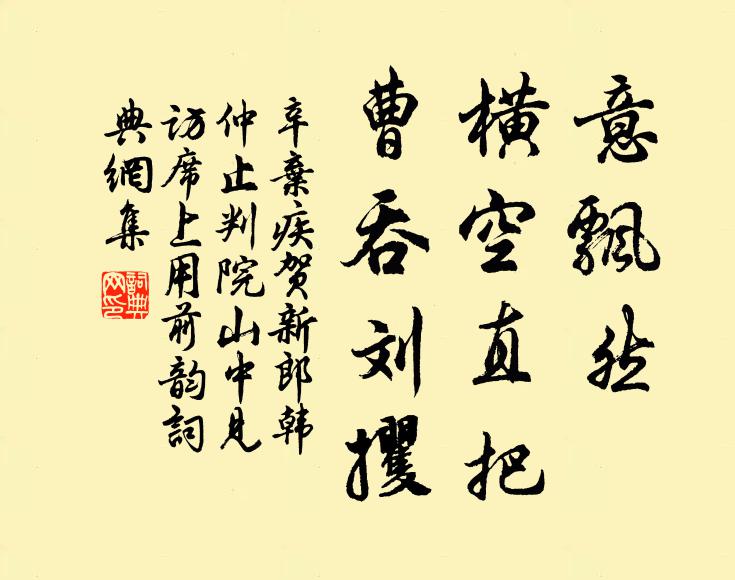 意飘然
横空直把
曹吞刘攫
辛棄疾贺新郎韩
仲止判院山中见
访席上用前韵詞
典網集
詞典網印